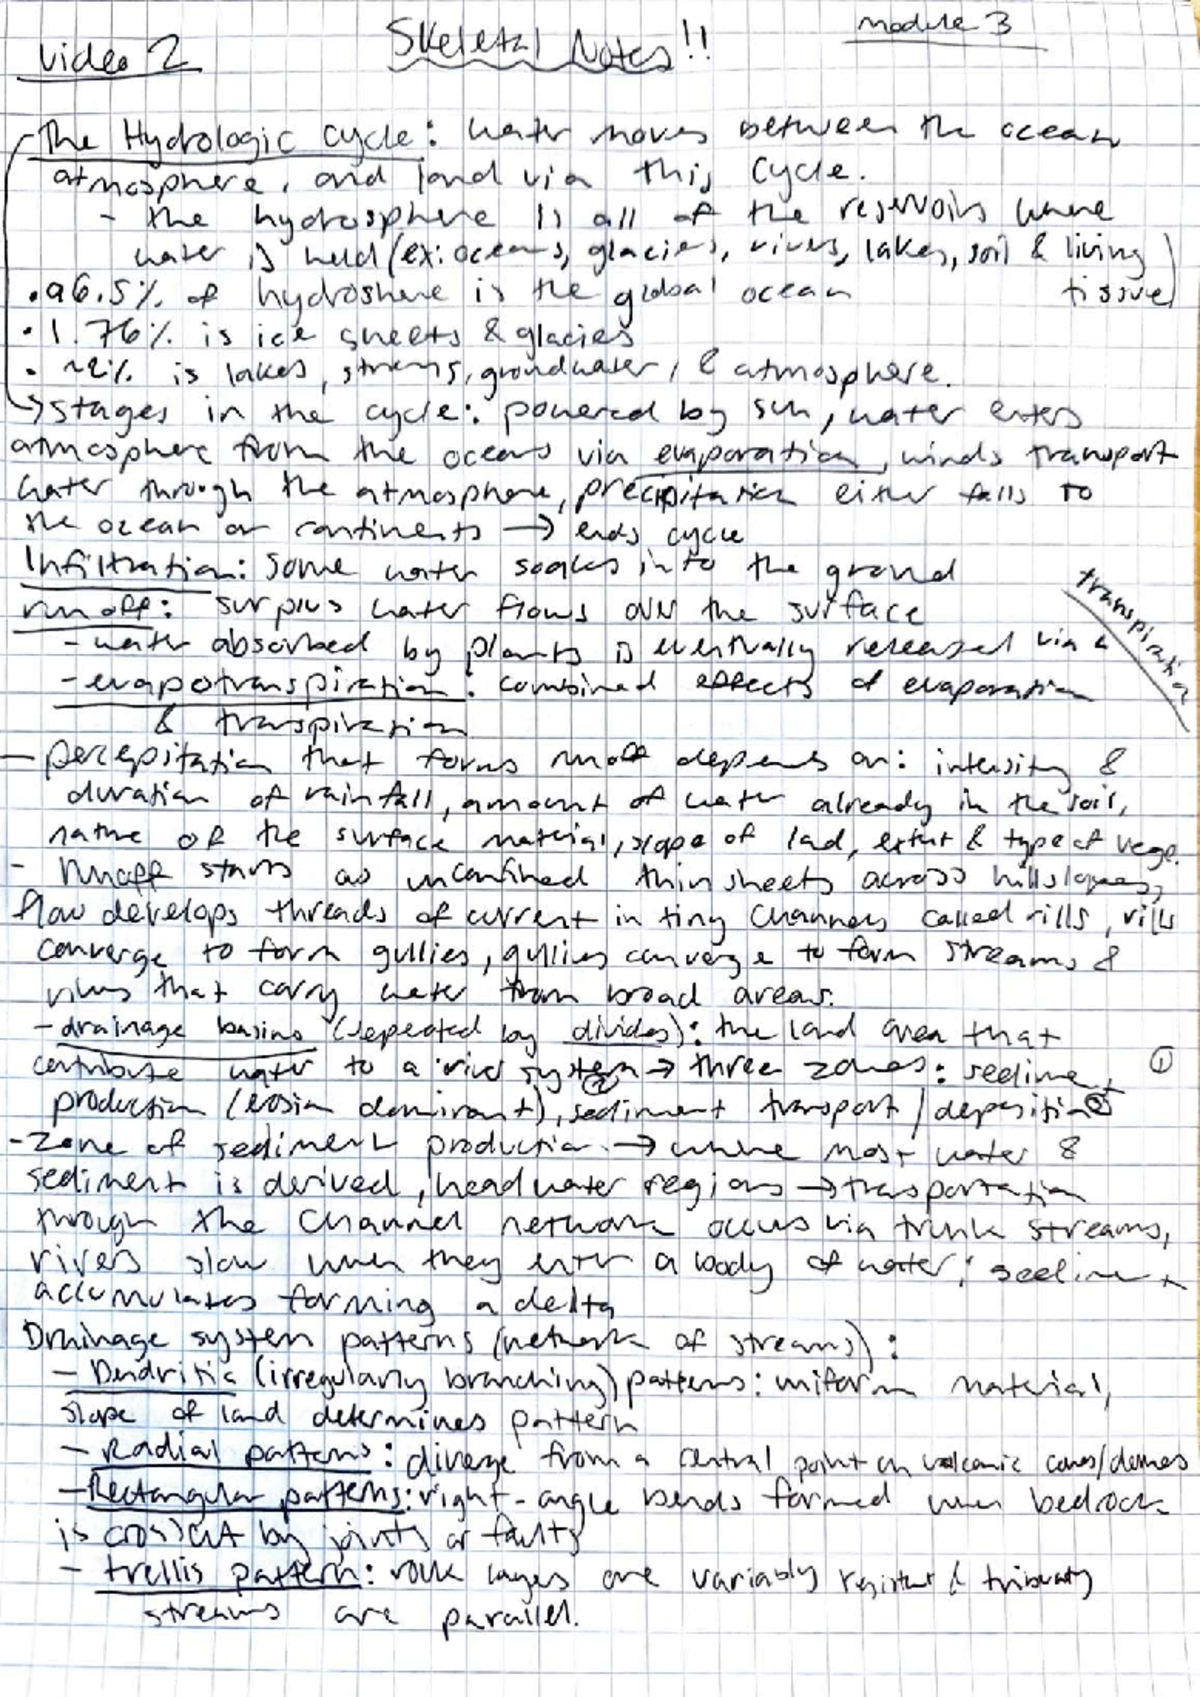 Video 2
Skeletal Notes!!
module 3
- The Hydrologic cycle: water moves between the ocean
atmosphere, and land via this cycle.
- the hydrosphere is all of the reservoirs where
water is held (ex: oceans, glaciers, rivers, lakes, soil & living
tissue)
• 96.5% of hydroshere is the global ocean
• 1.76% is ice sheets & glacies
• ~2% is lakes, streams, groundwater, & atmosphere.
→ stages in the cycle: powered by sun, water enters
atmosphere from the oceans via evaporation, winds transport
water through the atmosphere, precipitation either falls to
the ocean or continents → ends cycle
Infiltration: some water soakes into the ground
runoff: surplus water flows over the surface
- water absorbed by plants is eventually released via
transpiration
- evapotranspiration: combined effects of evaporation
& transpiration
- percepitation that forms runoff depends on: intensity &
duration of rainfall, amount of water already in the soil,
nature of the surface material, slope of land, extent & type of vege.
- Runoff starts as unconfined thin sheets across hillslopes,
flow develops threads of current in tiny channels called rills, rills
converge to form gullies, gullies converge to form streams &
rivers that carry water from broad areas.
- drainage basins (seperated by divides): the land area that
contribute water to a river system → three zones: sediment ①
production (erosion dominant), ② sediment transport / deposition ③
- Zone of sediment production → where most water &
sediment is derived, headwater regions → trasportation
through the channel network occurs via trunk streams,
rivers slow when they enter a body of water; sediment
accumulates forming a delta
Drainage system patterns (network of streams):
- Dendritic (irregularly branching) patterns: uniform material,
slope of land determines pattern
- Radial patterns: diverge from a central point on volcanic cones/domes
- Rectangular patterns: right-angle bends formed when bedrock
is crosscut by joints or faults
- trellis pattern: rock layes are variably resistent & tributary
streams are parallel.